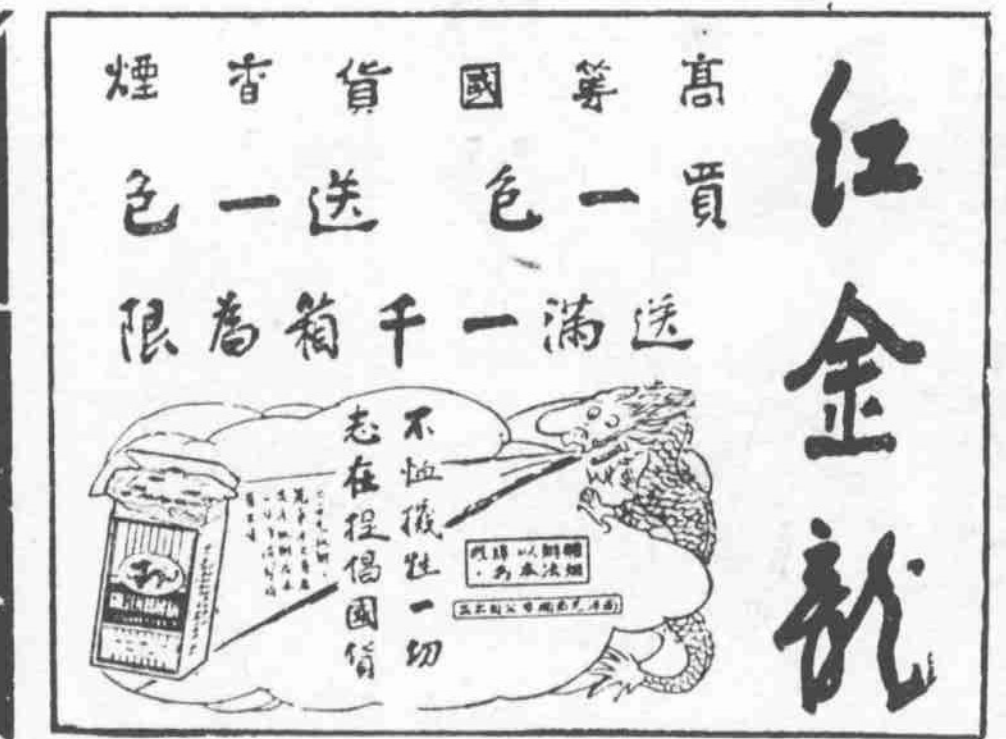 红金龍
高等國貨香煙
買一色 送一色
送滿一千箱為限
不恤犧牲一切
志在提倡國貨